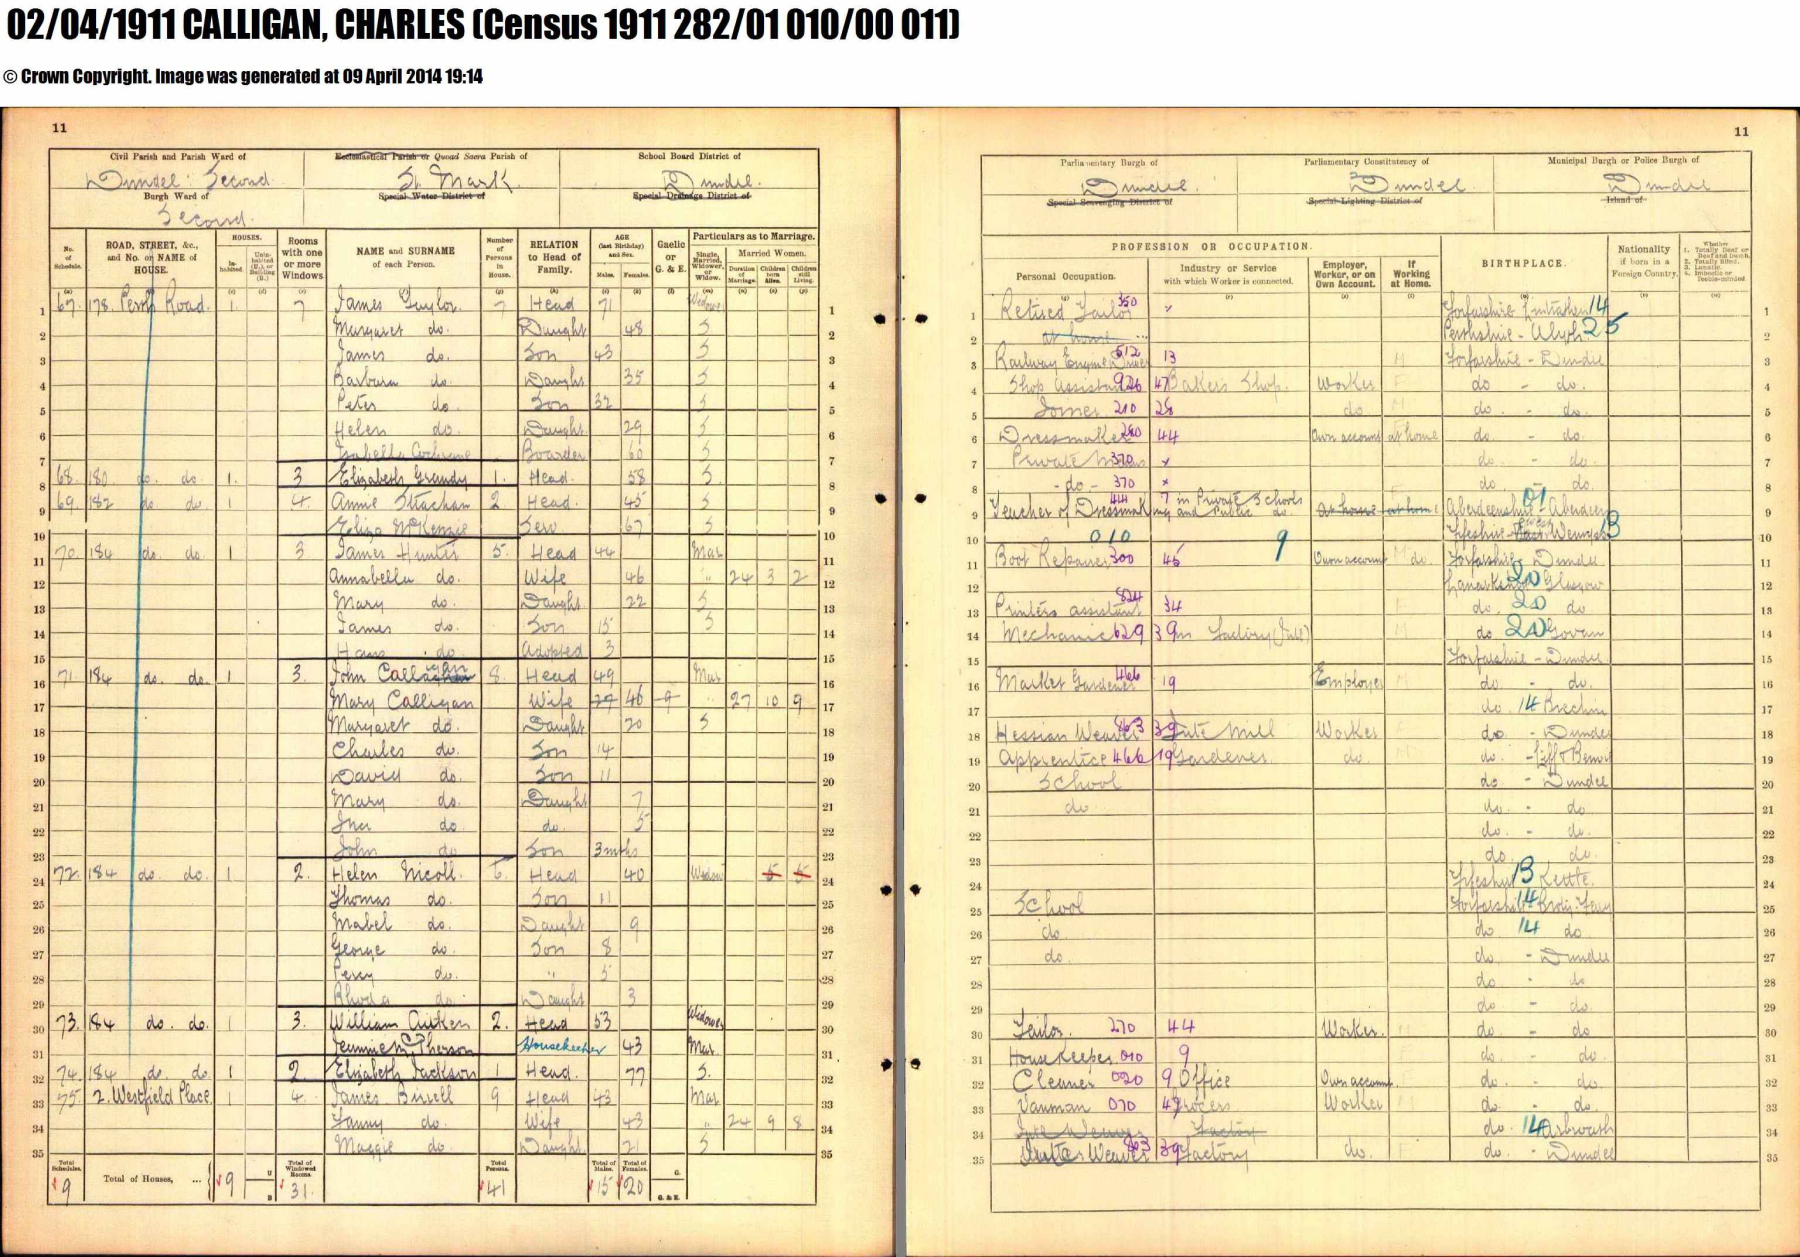 02/04/1911 CALLIGAN, CHARLES (Census 1911 282/01 010/00 011)
© Crown Copyright. Image was generated at 09 April 2014 19:14
11
Civil Parish and Parish Ward of
Dundee: Second
Burgh Ward of
Second.
Ecclesiastical Parish or Quoad Sacra Parish of
St Mark.
Special Water District of
School Board District of
Dundee.
Special Drainage District of
No. of Schedule. ROAD, STREET, &c., and No. or NAME of HOUSE. HOUSES. Inhabited Uninhabited (U.), or Building (B.) Rooms with one or more Windows NAME and SURNAME of each Person. Number of Persons in House. RELATION to Head of Family. AGE (last Birthday) and Sex. Males. Females. Gaelic or G. & E. Particulars as to Marriage. Single, Married, Widower, or Widow. Married Women. Duration of Marriage. Children born Alive. Children still Living.
1 67. 178. Perth Road. 1. 7 James Taylor. 7 Head 71 Widower 1
2 Margaret do. Daught 48 S 2
3 James do. Son 43 S 3
4 Barbara do. Daught 35 S 4
5 Peter do. Son 32 S 5
6 Helen do. Daught 29 S 6
7 Isabella Cochrane Boarder 60 S 7
8 68. 180. do. do. 1. 3 Elizabeth Grandy 1. Head. 58 S. 8
9 69. 182 do do. 1 4. Annie Strachan 2. Head. 45 S 9
10 Eliza McKenzie Serv. 67 S 10
11 70. 184 do. do. 1 3. James Hunter 5. Head 44 Mar 11
12 Annabella do. Wife 46 " 24 3 2 12
13 Mary do. Daught 22 S 13
14 James do. Son 15 S 14
15 Hans do. Adopted 3 15
16 71. 184 do. do. 1 3. John Calligan 8. Head 49 Mar 16
17 Mary Calligan Wife 46 27 10 9 17
18 Margaret do. Daught 20 S 18
19 Charles do. Son 14 19
20 David do. Son 11 20
21 Mary do. Daught 7 21
22 Ina do. do. 5 22
23 John do Son 3 mths 23
24 72. 184 do. do. 1 2. Helen Nicoll. 6. Head 40 Widow 5 5 24
25 Thomas do. Son 11 25
26 Mabel do. Daught 9 26
27 George do. Son 8 27
28 Percy do. " 5 28
29 Rhoda do. Daught 3 29
30 73. 184 do. do. 1 3. William Aitken 2. Head 53 Widower 30
31 Jeannie McPherson Housekeeper 43 Mar. 31
32 74. 184 do. do. 1 2. Elizabeth Jackson 1 Head. 77 S. 32
33 75. 2. Westfield Place. 1 4. James Birrell 9 Head 43 Mar 33
34 Fanny do. Wife 43 " 24 9 8 34
35 Maggie do. Daught 21 S 35
Total Schedules. 9 Total of Houses, ... 9 U B Total of Windowed Rooms. 31. Total Persons. 41 Total of Males. 15 Total of Females. 20 G. G. & E.
11
Parliamentary Burgh of
Dundee.
Special Scavenging District of
Parliamentary Constituency of
Dundee.
Special Lighting District of
Municipal Burgh or Police Burgh of
Dundee
Island of
PROFESSION OR OCCUPATION. Personal Occupation. Industry or Service with which Worker is connected. Employer, Worker, or on Own Account. If Working at Home. BIRTHPLACE. Nationality if born in a Foreign Country. Whether 1. Totally Deaf or Deaf and Dumb. 2. Totally Blind. 3. Lunatic. 4. Imbecile or Feeble-minded
1 Retired Tailor 350 Forfarshire 14 1
2 at home Perthshire - Alyth 25 2
3 Railway Engine Driver 512 13 M Forfarshire - Dundee 3
4 Shop Assistant 926 47 Bakers Shop. Worker F do - do. 4
5 Joiner 210 28 do M do. - do. 5
6 Dressmaker 280 44 Own account at home do. - do. 6
7 Private Means 370 x do. - do. 7
8 - do - 370 x do - do. 8
9 Teacher of Dressmaking 44 7 in Private Schools and Public do. At home at home Aberdeenshire - Aberdeen 01 9
10 010 9 Fifeshire - Wemyss 13 10
11 Boot Repairer 300 45 Own account M do. Forfarshire - Dundee 11
12 Lanarkshire 20 Glasgow 12
13 Printers assistant 824 34 F do. 20 do 13
14 Mechanic 629 39 in Factory (Jute) M do 20 Govan 14
15 Forfarshire - Dundee 15
16 Market Gardener 466 19 Employer M do. - do. 16
17 do. 14 Brechin 17
18 Hessian Weaver 863 39 Jute Mill Worker F do - Dundee 18
19 Apprentice 466 19 Gardener. do. M do. - Liff & Benvie 19
20 School do - Dundee 20
21 do do. - do 21
22 do. - do. 22
23 do. do. 23
24 Fifeshire 13 Kettle. 24
25 School Forfarshire 14 Broty. Ferry 25
26 do. do 14 do. 26
27 do. do. - Dundee 27
28 do - do 28
29 do. - do. 29
30 Tailor. 270 44 Worker. M do. - do 30
31 Housekeeper 010 9 F do - do. 31
32 Cleaner 020 9 Office Own account. F do. - do. 32
33 Vanman 070 49 Grocers Worker M do - do. 33
34 Jute Weaver Factory do. 14 Arbroath 34
35 Jute Weaver 863 39 Factory do. F do. - Dundee 35